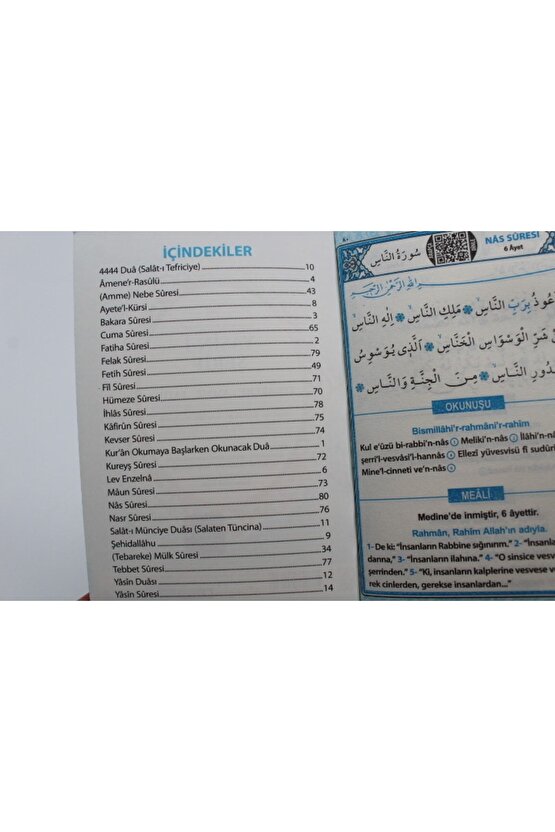 İÇİNDEKİLER
4444 Duâ (Salât-ı Tefriciye) 10
Âmene'r-Rasûlü 4
(Amme) Nebe Sûresi 43
Ayete'l-Kürsi 8
Bakara Sûresi 3
Cuma Sûresi 65
Fatiha Sûresi 2
Felak Sûresi 79
Fetih Sûresi 49
Fîl Sûresi 71
Hümeze Sûresi 70
İhlâs Sûresi 78
Kâfirûn Sûresi 75
Kevser Sûresi 74
Kur'ân Okumaya Başlarken Okunacak Duâ 1
Kureyş Sûresi 72
Lev Enzelnâ 6
Mâun Sûresi 73
Nâs Sûresi 80
Nasr Sûresi 76
Salât-ı Münciye Duâsı (Salaten Tüncina) 11
Şehidallâhu 9
(Tebareke) Mülk Sûresi 34
Tebbet Sûresi 77
Yâsîn Duâsı 12
Yâsîn Sûresi 14
٨٠
سُورَةُ النَّاسِ
NÂS SÛRESİ
6 Âyet
بِسْمِ اللّٰهِ الرَّحْمٰنِ الرَّحِيمِ
عُوذُ بِرَبِّ النَّاسِ مَلِكِ النَّاسِ اِلٰهِ النَّاسِ
شَرِّ الْوَسْوَاسِ الْخَنَّاسِ اَلَّذِى يُوَسْوِسُ
دُورِ النَّاسِ مِنَ الْجِنَّةِ وَالنَّاسِ
OKUNUŞU
Bismillâhi'r-rahmâni'r-rahîm
Kul e'ûzü bi-rabbi'n-nâs 1 Meliki'n-nâs 2 İlâhi'n-nâ
şerri'l-vesvâsi'l-hannâs 4 Ellezî yüvesvisü fî sudûri
Mine'l-cinneti ve'n-nâs 6
MEÂLİ
Medine'de inmiştir, 6 âyettir.
Rahmân, Rahîm Allah'ın adıyla.
1- De ki: "İnsanların Rabbine sığınırım." 2- "İnsanla
danna," 3- "İnsanların ilahına." 4- "O sinsice vesv
şerrinden." 5- "Ki, insanların kalplerine vesvese v
rek cinlerden, gerekse insanlardan..."